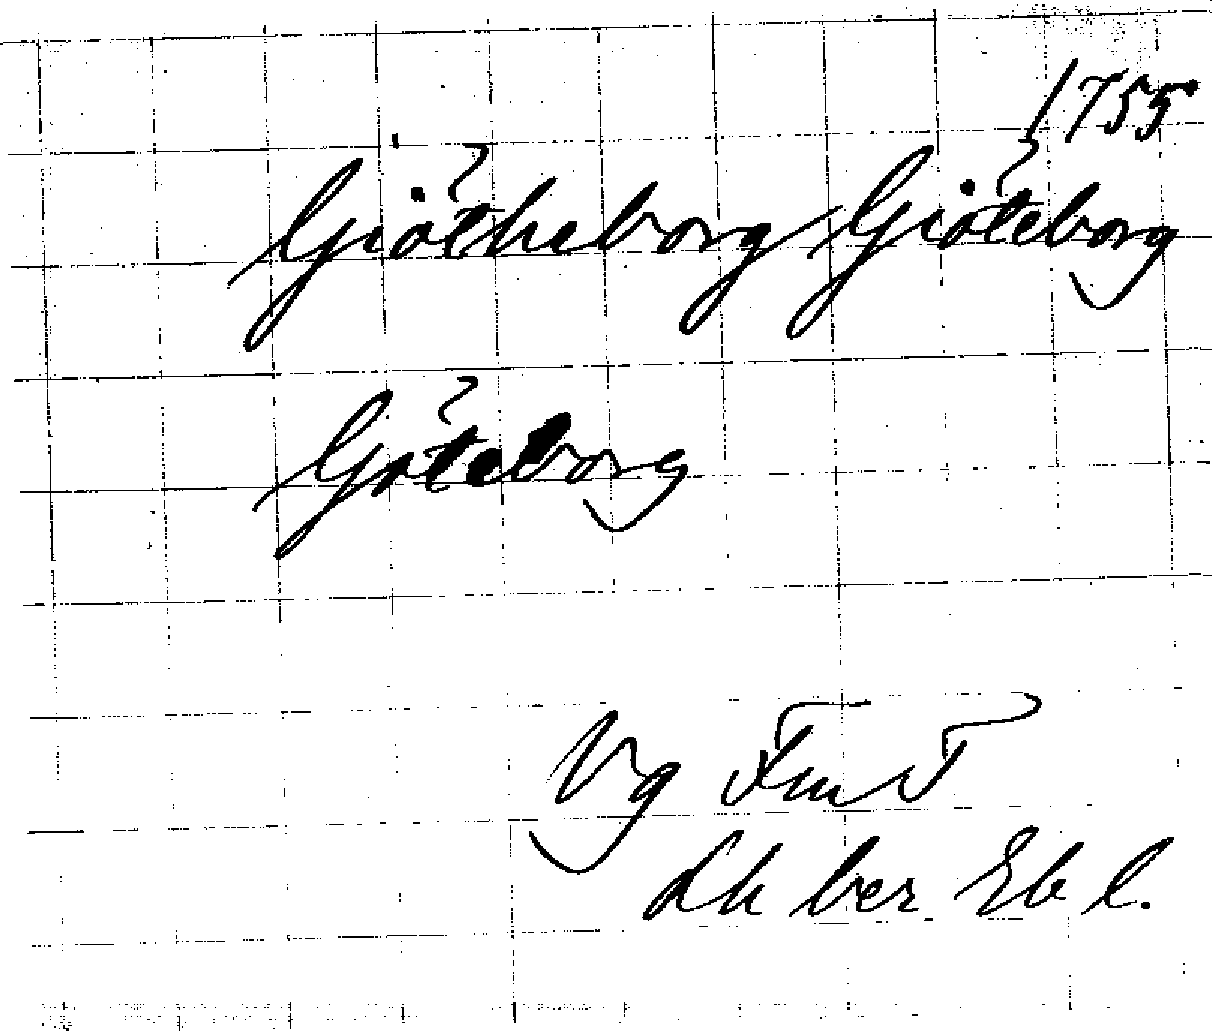 1755
Giötheborg Giöteborg
Göteborg
Vg
Lh ber Eb l.